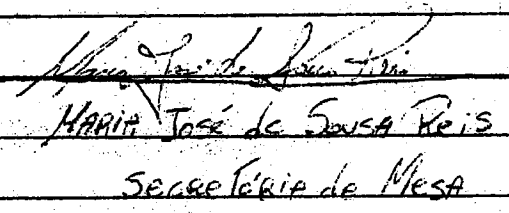 Maria José de Sousa Reis
MARIA José de SousA Reis
SecreTÁRIA de MesA